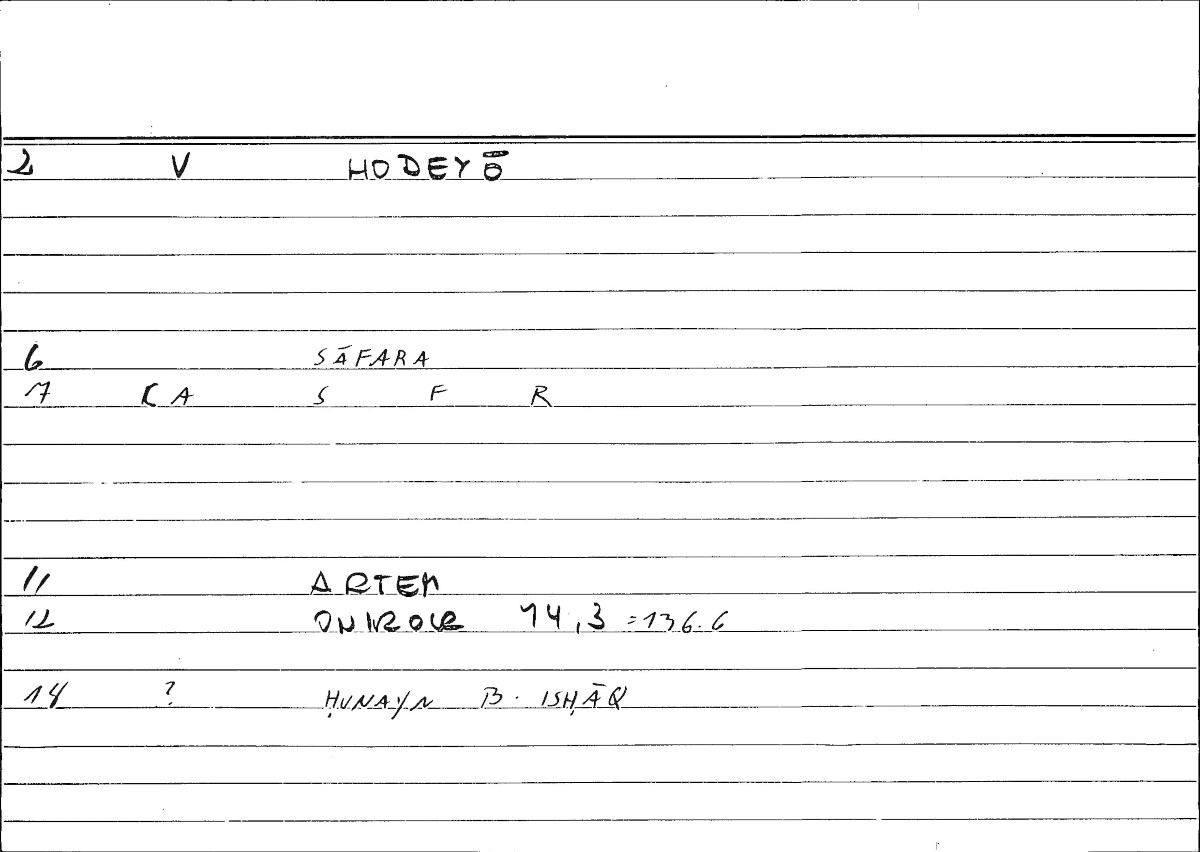 2 V HODEYŌ
6 SĀFARA
7 CA S F R
11 ARTEM
12 ONIROCR 14,3 =136.6
14 ? ḤUNAYN B. ISḤĀQ